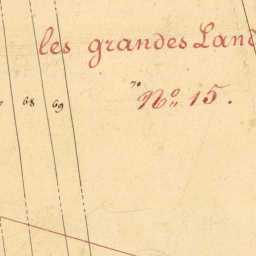 les grandes Land
70
No 15.
68 69